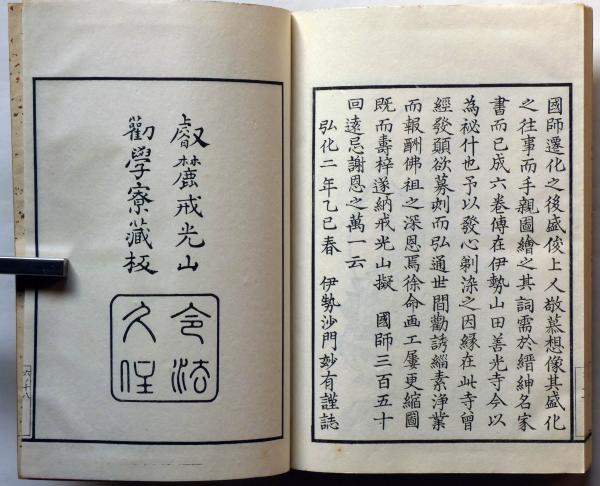 國師遷化之後盛俊上人敬慕想像其盛化
之往事而手親圖繪之其詞需於縉紳名家
書而已成六卷傳在伊勢山田善光寺今以
為秘什也予以發心剃染之因緣在此寺曾
經發願欲募刻而弘通世間勸誘緇素淨業
而報酬佛祖之深恩焉徐命画工屢更縮圖
既而壽梓遂納戒光山擬　國師三百五十
回遠忌謝恩之萬一云
弘化二年乙巳春　伊勢沙門妙有謹誌
叡麓戒光山
勸學寮藏板
令法
久住